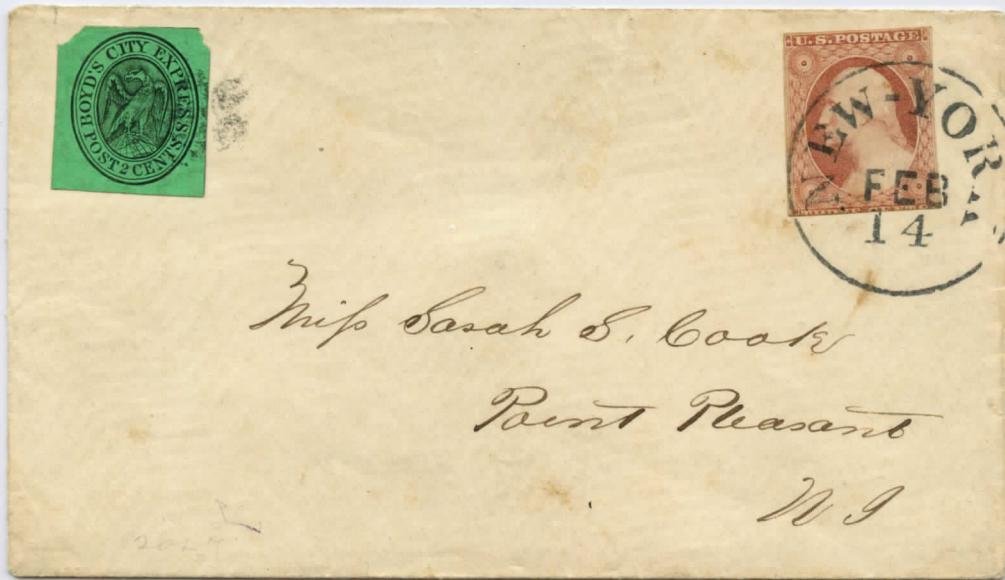 BOYD'S CITY EXPRESS
POST 2 CENTS
U.S. POSTAGE
NEW-YORK
FEB
14
Miſs Sarah S. Cook
Point Pleasant
N J